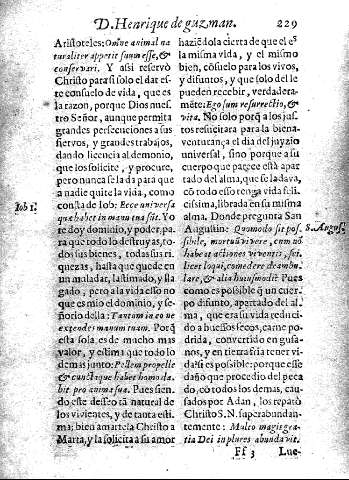 D. Henrique de guzman. 229
Aristoteles: Omne animal na
turaliter appetit suum esse, &
conservari. Y assi reservò
Christo para sí solo el dar es-
te consuelo de vida, que es
la razon, porque Dios nues-
tro Señor, aunque permita
grandes persecuciones a sus
siervos, y grandes trabajos,
dando licencia al demonio,
que los solicite, y procure,
pero nunca se la da para que
a nadie quite la vida, como
consta de Iob: Ecce universa
que habet in manu tua sũt. Yo
te doy dominio, y poder, pa
ra que todo lo destruyas, to-
dos sus bienes, todas sus ri-
quezas, hasta que quede en
un muladar, lastimado, y lla
gado, pero a la vida esso no
que es mio el dominio, y se-
ñorio della: Tantum in eo ne
extendas manum tuam. Porq̃
esta sola es de mucho mas
valor, y estima que todo lo
demas junto: Pellem pro pelle
& cuncta que habet homo da
bit pro anima sua. Pues sien-
do este desseo tã natural de
los vivientes, y de tanta esti
ma; bien amartela Christo a
Marta, y la solicita a su amor
Iob 1.
haziẽdola cierta de que el es
la misma vida, y el mismo
bien, cõsuelo para los vivos,
y difuntos, y que solo del le
pueden recebir, verdadera-
mẽte: Ego sum resurrectio, &
vita. No solo porq̃ a los jus-
tos resucitara para la biena-
venturança el dia del juyzio
universal, sino porque a su
cuerpo que parece està apar
tado del alma, que se la dava,
cõ todo esso tenga vida feli-
cissima, librada en su misma
alma. Donde pregunta San
Augustin: Quomodo sit pos-
sibile, mortuũ vivere, cum nõ
habeat actiones viventis, sci-
licet loqui, comedere deambu-
lare, & alia huiusmodi? Pues
como es possible q̃ un cuer-
po difunto, apartado del al-
ma, que era su vida reduci-
do a huessos secos, carne po-
drida, convertido en gusa-
nos, y en tierra fria tener vi-
da? si es possible: porque esse
daño que procedio del peca
do, cõ todos los demas, cau-
sados por Adan, los reparò
Christo S. N. superabundan-
temente: Multo magis gra-
tia Dei in plures abundavit.
S. Augus.
Ff 3 Lue-